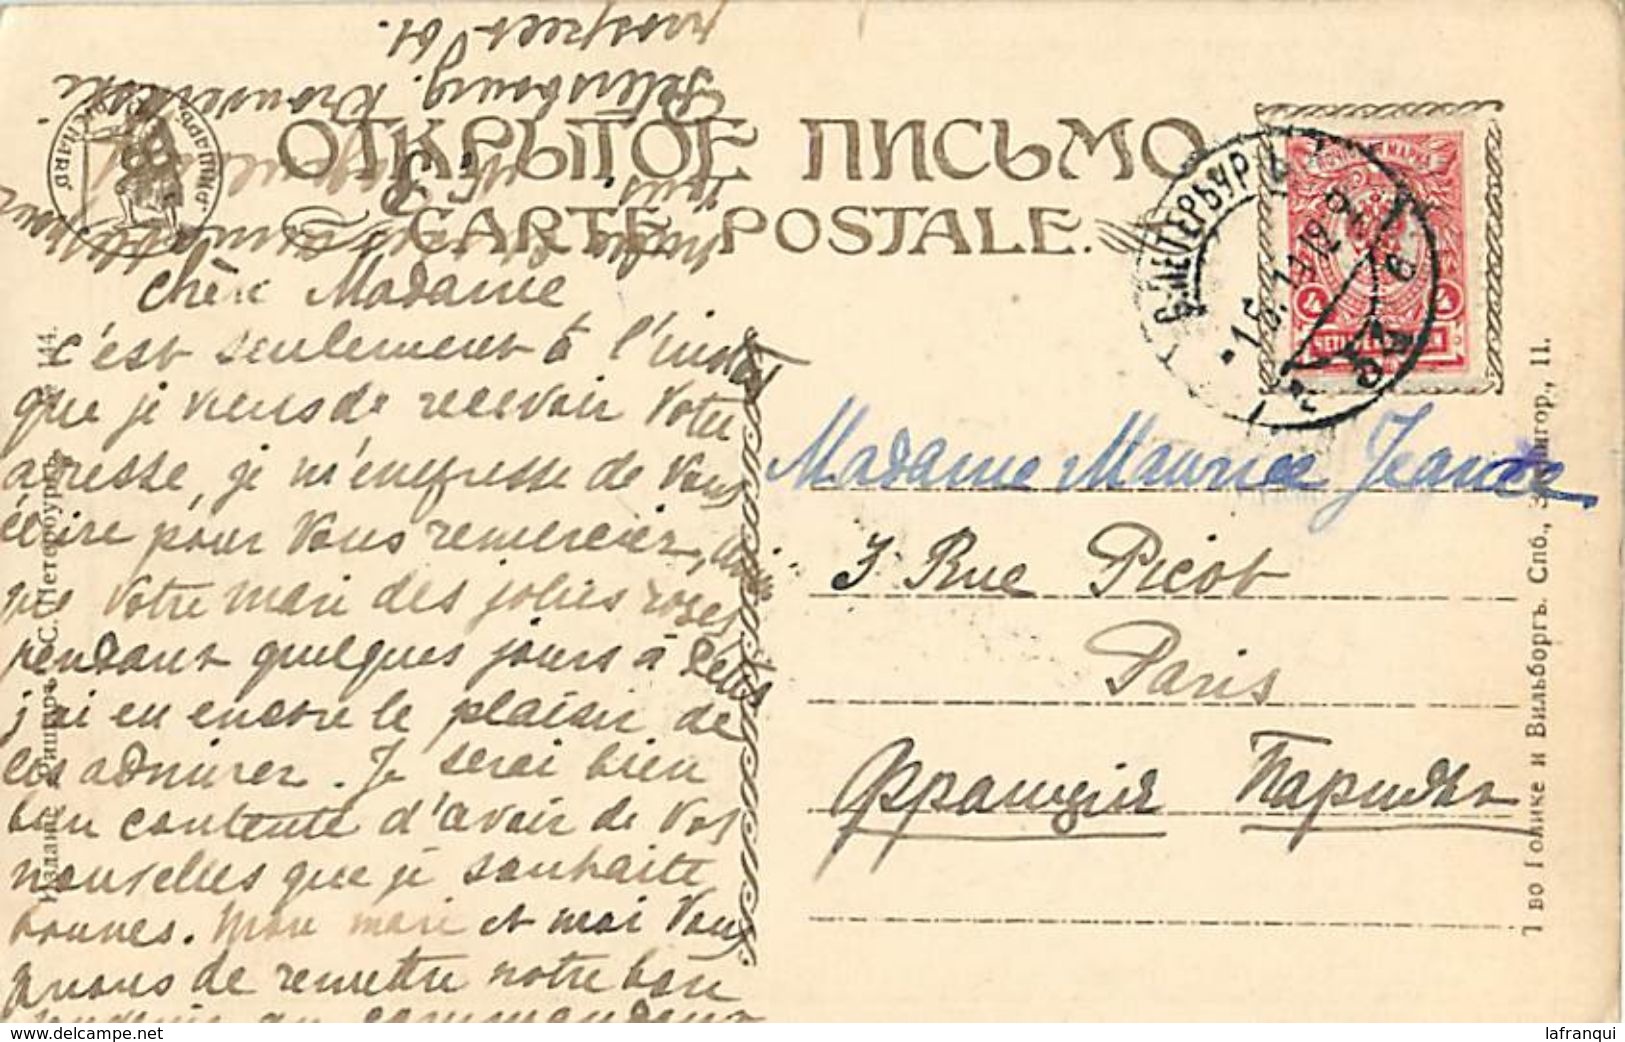 ОТКРЫТОЕ ПИСЬМО
CARTE POSTALE.
Петersbourg.
prospect 61.
Chère Madame
c'est seulement à l'instant
que je viens de recevoir Votre
adresse, je m'empresse de Vous
écrire pour Vous remercier,
que Votre mari des jolies roses
pendant quelques jours à
j'ai eu encore le plaisir de
les admirer. Je serai bien
bien contente d'avoir de Vos
nouvelles que je souhaite
bonnes. Mon mari et moi Vous
prions de remettre notre bon
souvenir au commandant
С.ПЕТЕРБУРГЪ
1.5.13.12
ПОЧТОВАЯ МАРКА
4 4
Madame Maurice Jeance
3 Rue Picot
Paris
Франція Парижъ
144.
С. Петербургъ
Т во Голике и Вильборгъ. Спб., Звенигор., 11.
delcampe.net
lafranqui